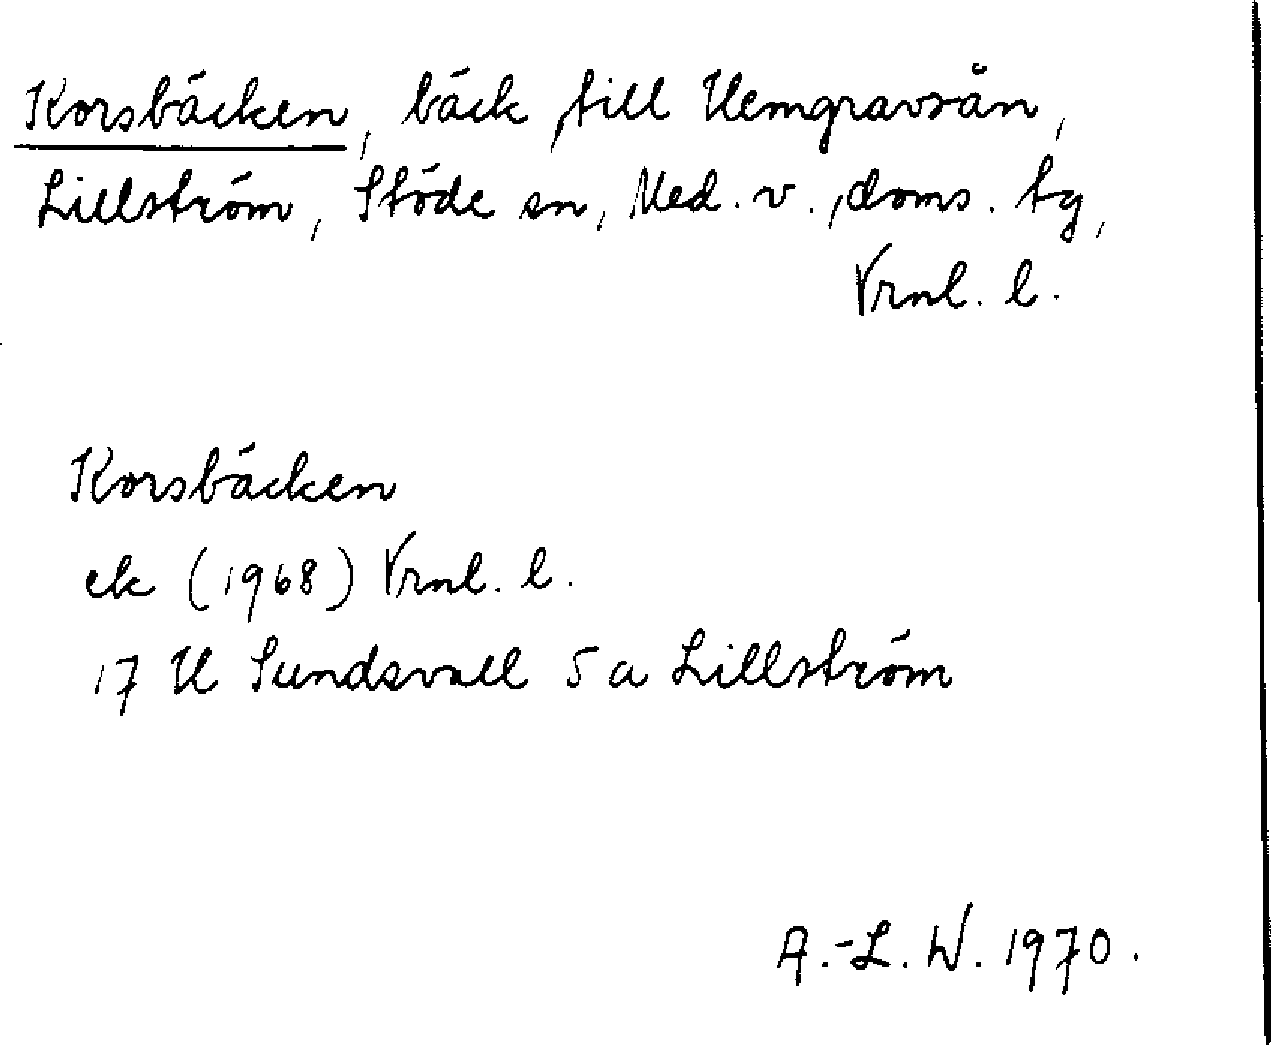 Korsbäcken, bäck till Hemgravsån,
Lillström, Stöde sn, Med. v., doms. tg,
Vrnl. l.
Korsbäcken
ek (1968) Vrnl. l.
17 H Sundsvall 5 a Lillström
A.-L. W. 1970.